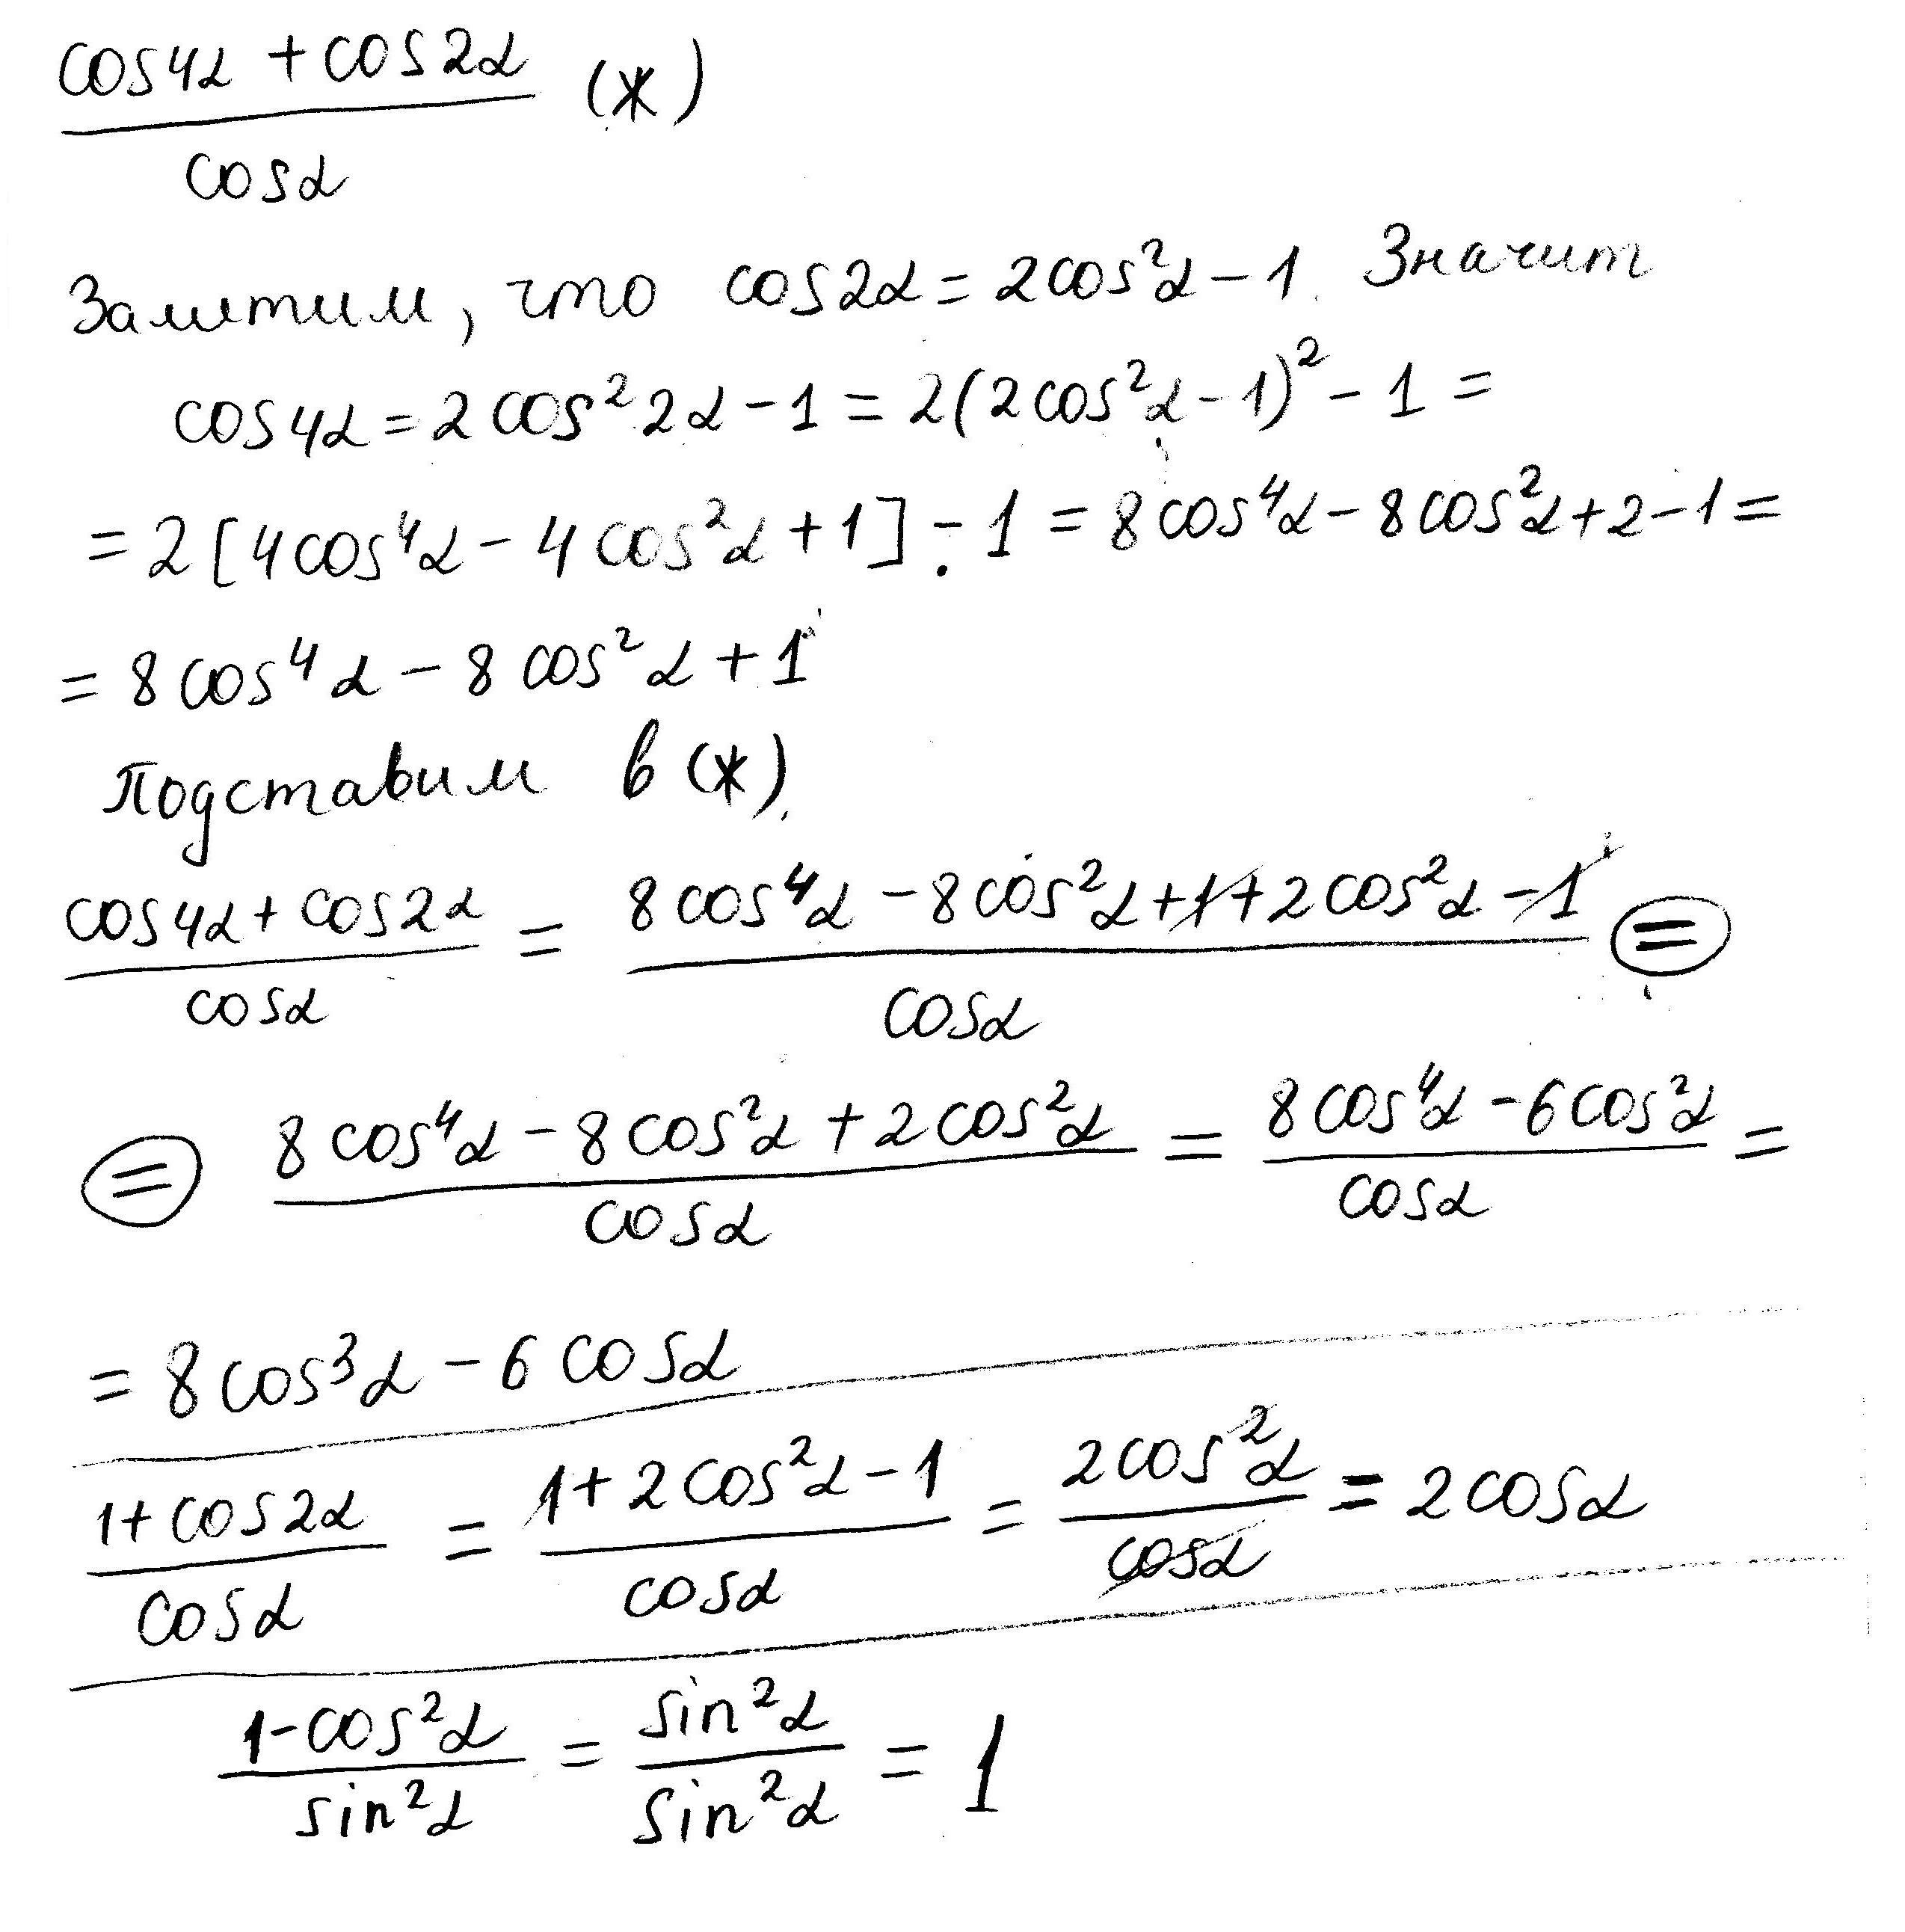 (cos4α + cos2α)/cosα (*)
Заметим, что cos2α = 2cos²α − 1. Значит
cos4α = 2cos²2α − 1 = 2(2cos²α − 1)² − 1 =
= 2[4cos⁴α − 4cos²α + 1] − 1 = 8cos⁴α − 8cos²α + 2 − 1 =
= 8cos⁴α − 8cos²α + 1
Подставим в (*).
(cos4α + cos2α)/cosα = (8cos⁴α − 8cos²α + 1 + 2cos²α − 1)/cosα =
= (8cos⁴α − 8cos²α + 2cos²α)/cosα = (8cos⁴α − 6cos²α)/cosα =
= 8cos³α − 6cosα
(1 + cos2α)/cosα = (1 + 2cos²α − 1)/cosα = 2cos²α/cosα = 2cosα
(1 − cos²α)/sin²α = sin²α/sin²α = 1